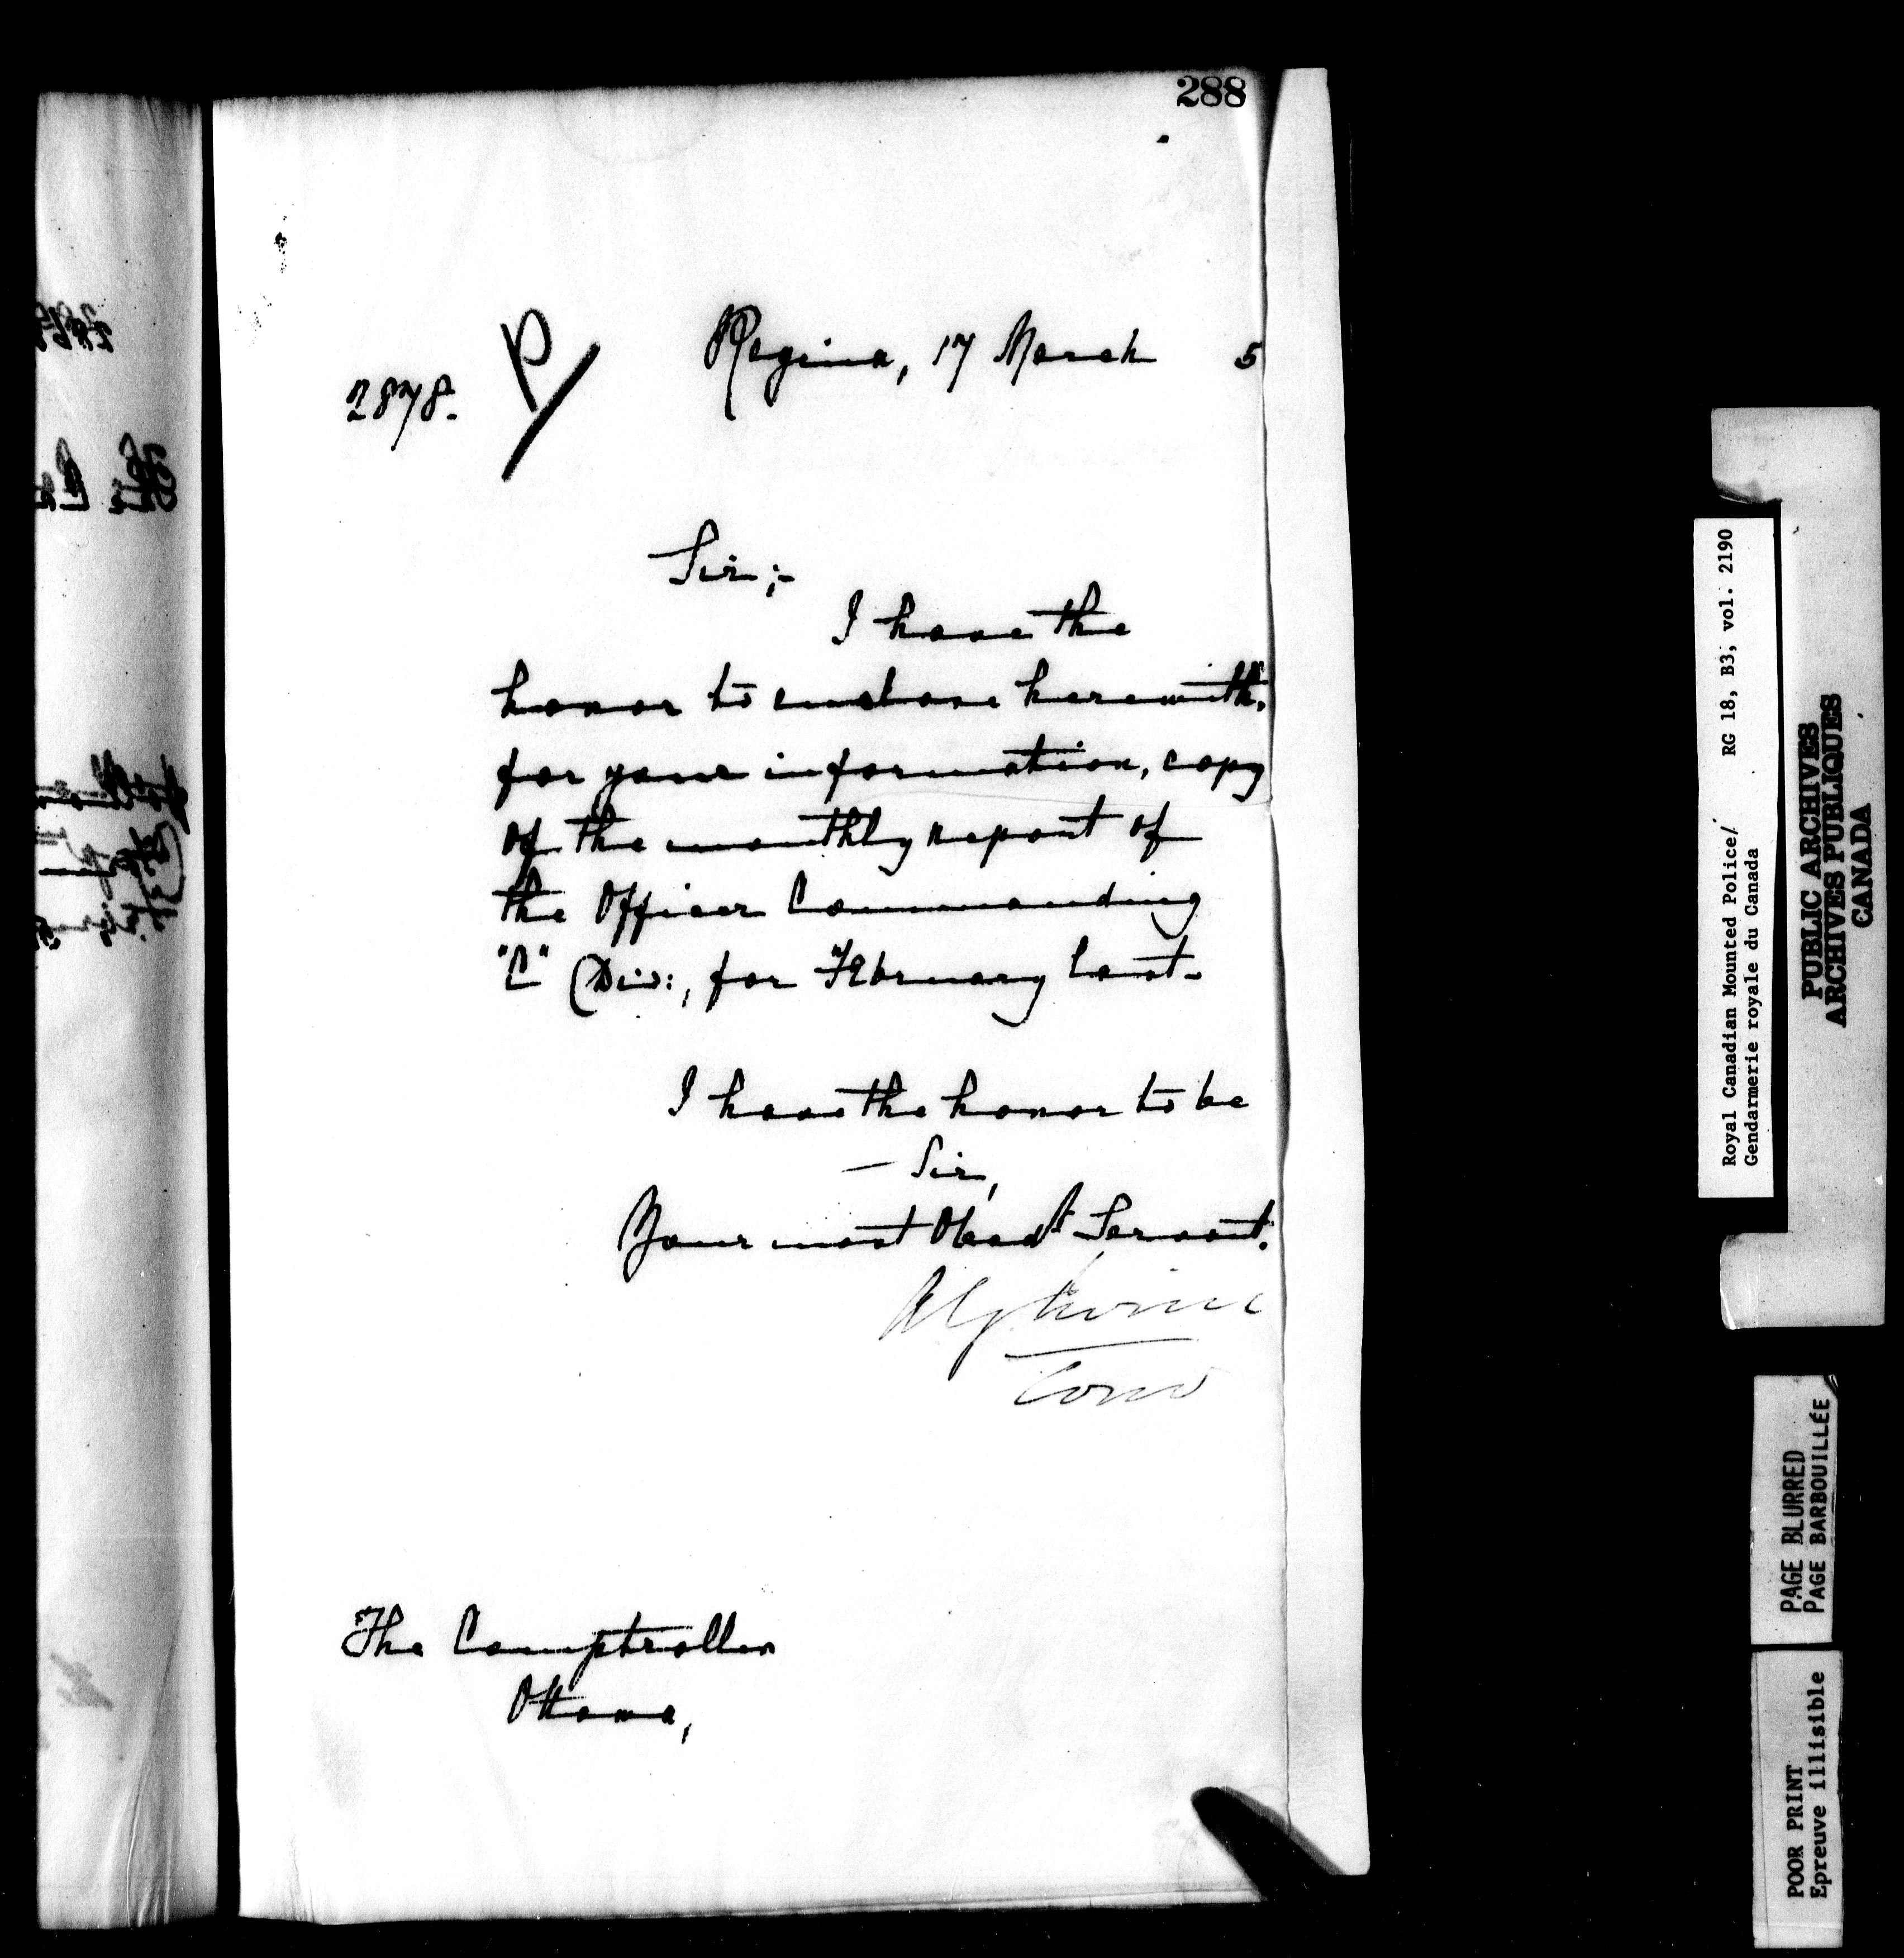 288
Regina, 17 March 5
2878.
P/
Sir;-
I have the
honor to enclose herewith,
for your information, copy
of the monthly report of
the Officer Commanding
"C" Div:, for February last-
I have the honor to be
- Sir,
Your most Obedt Servant.
The Comptroller
Ottawa,
Royal Canadian Mounted Police/ RG 18, B3, vol. 2190
Gendarmerie royale du Canada
PUBLIC ARCHIVES
ARCHIVES PUBLIQUES
CANADA
PAGE BLURRED
PAGE BARBOUILLÉE
POOR PRINT
Epreuve illisible